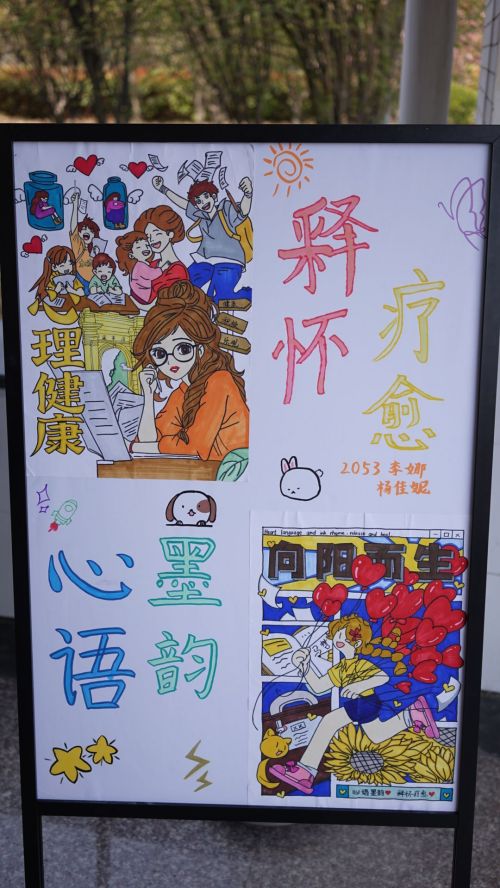 心理健康
释怀
疗愈
2053 李娜
杨佳妮
心语
墨韵
Heart language and ink rhyme, release and heal
向阳而生
心语墨韵 释怀疗愈